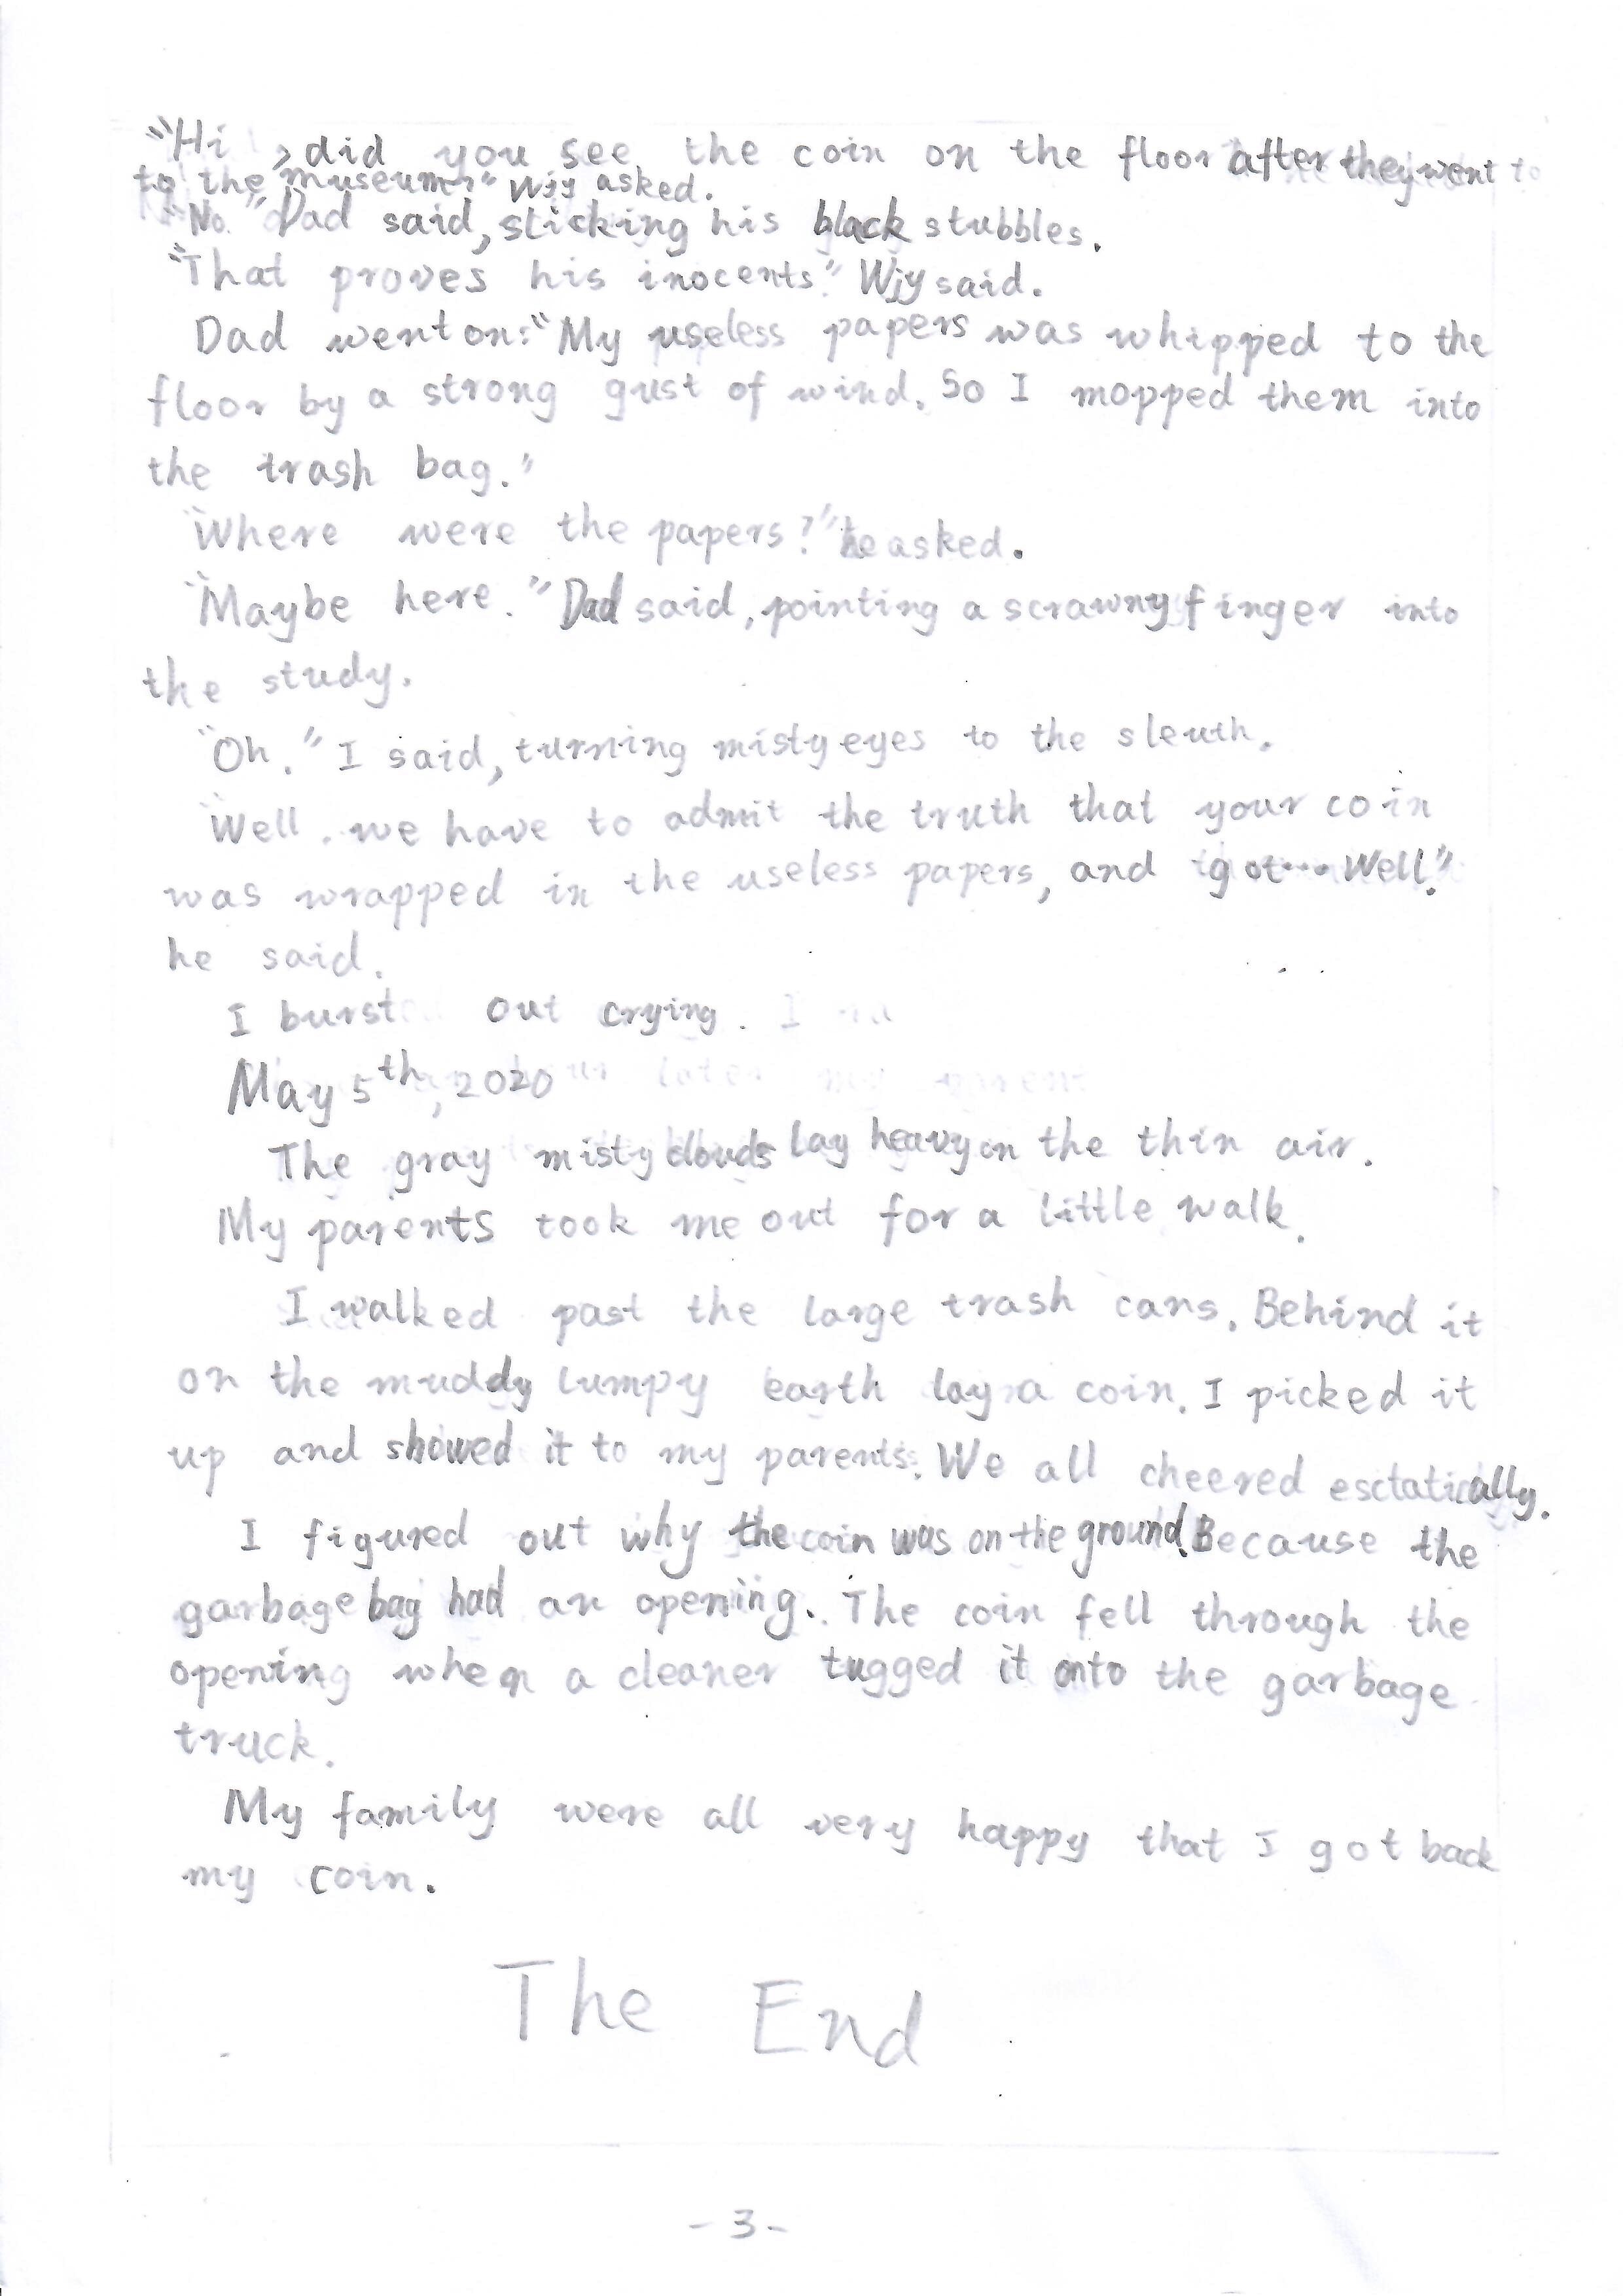 "Hi, did you see the coin on the floor after they went to
to the museum?" Wjy asked.
"No." Dad said, sticking his black stubbles.
"That proves his inocents." Wjy said.
Dad went on: "My useless papers was whipped to the
floor by a strong gust of wind. So I mopped them into
the trash bag."
"Where were the papers?" he asked.
"Maybe here." Dad said, pointing a scrawny finger into
the study.
"Oh." I said, turning misty eyes to the sleuth.
"Well. we have to admit the truth that your coin
was wrapped in the useless papers, and got... Well."
he said.
I burst out crying.
May 5th, 2020
The gray misty clouds lay heavy on the thin air.
My parents took me out for a little walk.
I walked past the large trash cans. Behind it
on the muddy lumpy earth lay a coin. I picked it
up and showed it to my parents. We all cheered esctatically.
I figured out why the coin was on the ground. Because the
garbage bag had an opening. The coin fell through the
opening when a cleaner tugged it onto the garbage
truck.
My family were all very happy that I got back
my coin.
The End
- 3 -